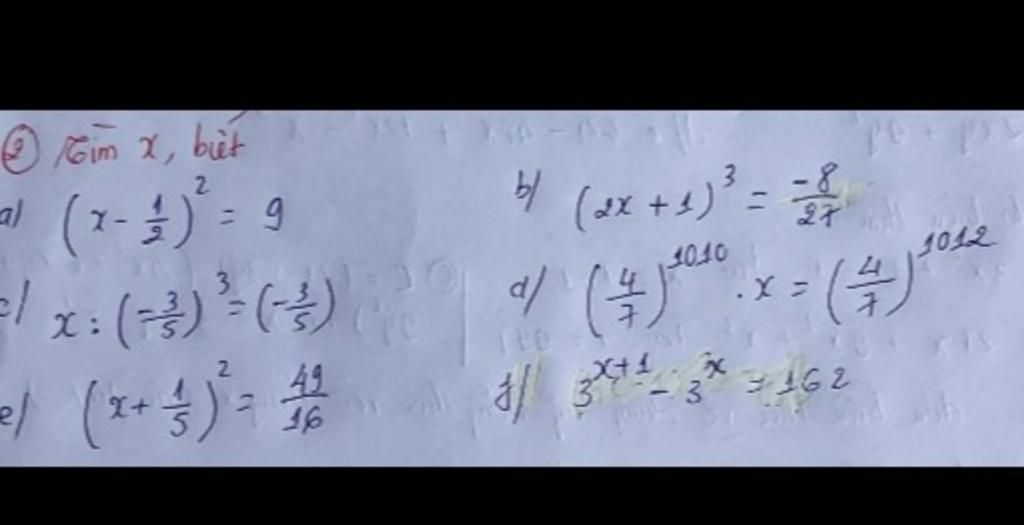 ② Tìm x, biết
a/ (x - 1/2)² = 9
b/ (2x + 1)³ = -8/27
c/ x : (-3/5)³ = (-3/5)
d/ (4/7)¹⁰¹⁰ . x = (4/7)¹⁰¹²
e/ (x + 1/5)² = 49/16
f/ 3ˣ⁺¹ - 3ˣ = 162